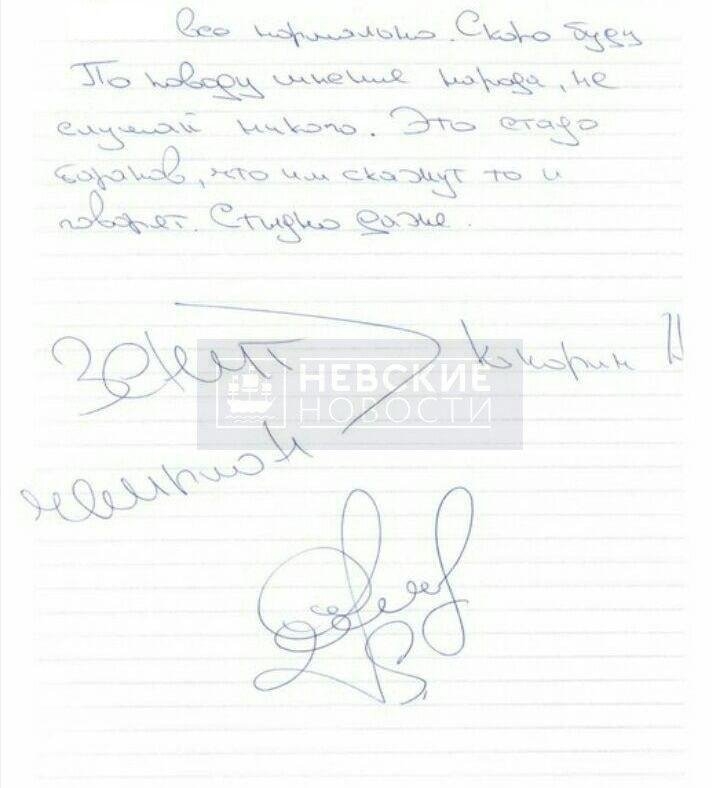 всё нормально. Скоро буду
По поводу мнение народа, не
слушай никого. Это стадо
баранов, что им скажут то и
говорят. Стыдно даже.
Зенит Кокорин
НЕВСКИЕ
НОВОСТИ
чемпион